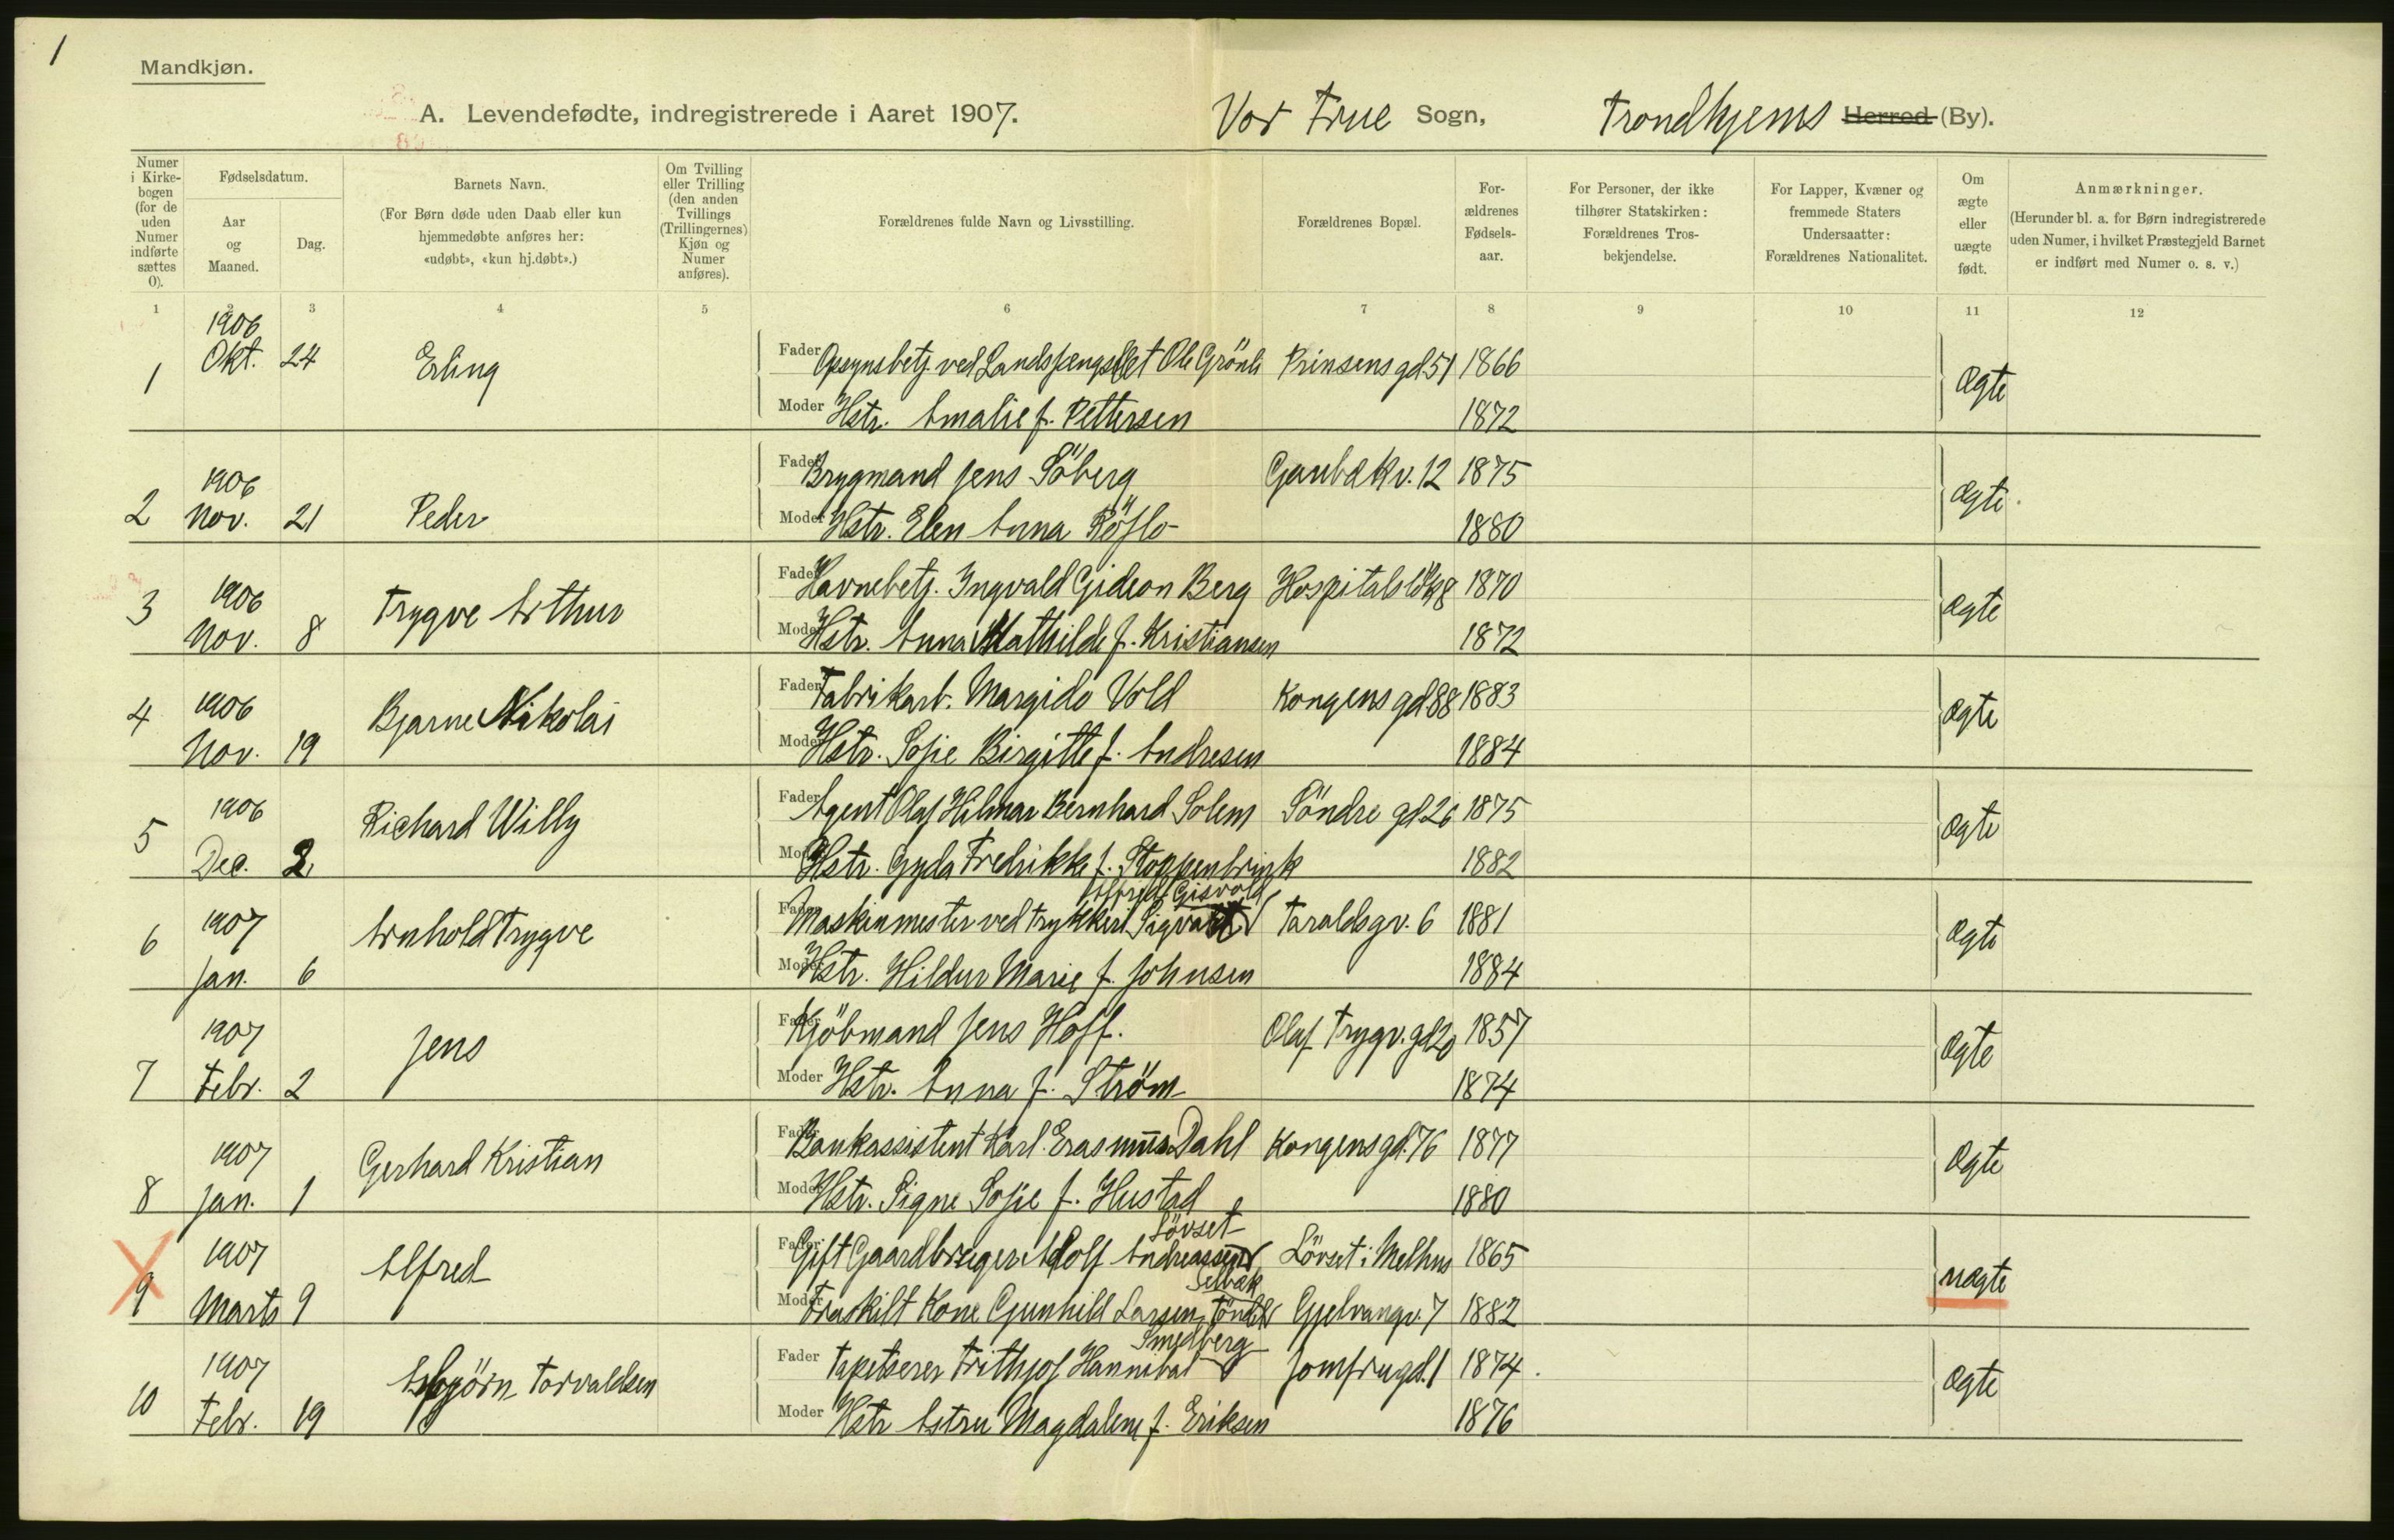 1
Mandkjøn.
A. Levendefødte, indregistrerede i Aaret 1907. Vor Frue Sogn, Trondhjems Herred (By).
Numer i Kirkebogen (for de uden Numer indførte sættes 0).
Fødselsdatum.
Aar og Maaned.
Dag.
Barnets Navn.
(For Børn døde uden Daab eller kun hjemmedøbte anføres her: «udøbt», «kun hj.døbt».)
Om Tvilling eller Trilling (den anden Tvillings (Trillingernes) Kjøn og Numer anføres).
Forældrenes fulde Navn og Livsstilling.
Forældrenes Bopæl.
Forældrenes Fødselsaar.
For Personer, der ikke tilhører Statskirken: Forældrenes Trosbekjendelse.
For Lapper, Kvæner og fremmede Staters Undersaatter: Forældrenes Nationalitet.
Om ægte eller uægte født.
Anmærkninger.
(Herunder bl. a. for Børn indregistrerede uden Numer, i hvilket Præstegjeld Barnet er indført med Numer o. s. v.)
1 2 3 4 5 6 7 8 9 10 11 12
1 1906 Okt. 24 Erling Fader Opsynsbetj. ved Landsfængslet Ole Grönli Prinsens gd 51 1866 Ægte
Moder Hstr. Amalie f. Pettersen 1872
2 1906 Nov. 21 Peder Fader Brygmand Jens Söberg Gaubæk v. 12 1875 Ægte
Moder Hstr. Elen Anna Röflo 1880
3 1906 Nov. 8 Trygve Arthur Fader Havnebetj. Ingvald Gideon Berg Hospitalsløk 8 1870 Ægte
Moder Hstr. Anna Mathilde f. Kristiansen 1872
4 1906 Nov. 19 Bjarne Nikolai Fader Fabrikarb. Margido Vold Kongens gd 88 1883 Ægte
Moder Hstr. Sofie Birgitte f. Andresen 1884
5 1906 Dec. 2 Richard Willy Fader Agent Olaf Hilmar Bernhard Solem Söndre gd 26 1875 Ægte
Moder Hstr. Gyda Fredrikke f. Stoppenbrink 1882
Alfred Gisvold
6 1907 Jan. 6 Arnhold Trygve Fader Maskinmester ved Trykkeri Sigvart Taraldsgv. 6 1881 Ægte
Moder Hstr. Hildur Marie f. Johnsen 1884
7 1907 Febr. 2 Jens Fader Kjöbmand Jens Hoff. Olaf Trygv. gd 20 1857 Ægte
Moder Hstr. Anna f. Strøm 1874
8 1907 Jan. 1 Gerhard Kristian Fader Bankassistent Karl Erasmus Dahl Kongens gd. 76 1877 Ægte
Moder Hstr. Signe Sofie f. Hustad 1880
Lövset
9 1907 Marts 9 Alfred Fader Gift Gaardbruger Adolf Andreassen Lövset i Melhus 1865 uægte
Selbæk
Moder Fraskilt Kone Gunhild Larsen Gjelvangv. 7 1882
Smedberg
10 1907 Febr. 19 Asbjörn Torvaldsen Fader Tapetserer Frithjof Hannibal Jomfrugd. 1 1874 Ægte
Moder Hstr Astru Magdalene f. Eriksen 1876